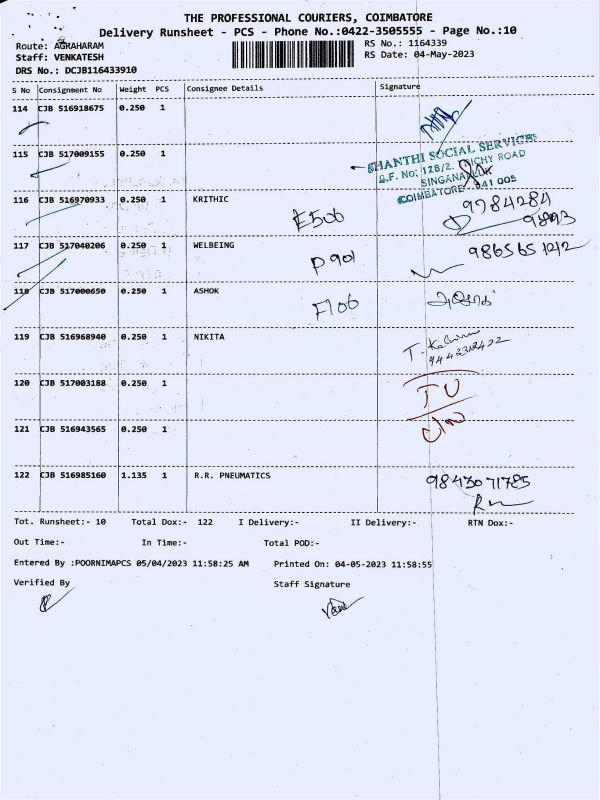 THE PROFESSIONAL COURIERS, COIMBATORE
Delivery Runsheet - PCS - Phone No.:0422-3505555 - Page No.:10
Route: AGRAHARAM
RS No.: 1164339
Staff: VENKATESH
RS Date: 04-May-2023
DRS No.: DCJB116433910
S No Consignment No Weight PCS Consignee Details Signature
114 CJB 516918675 0.250 1
115 CJB 517009155 0.250 1
SHANTHI SOCIAL SERVICE
S.F. No: 128/2, TRICHY ROAD
SINGANALLUR
COIMBATORE 641 005
116 CJB 516970933 0.250 1 KRITHIC
E506
9784284
117 CJB 517040206 0.250 1 WELBEING
P901
9865651212
118 CJB 517000650 0.250 1 ASHOK
F106
119 CJB 516968940 0.250 1 NIKITA
120 CJB 517003188 0.250 1
121 CJB 516943565 0.250 1
122 CJB 516985160 1.135 1 R.R. PNEUMATICS
9843071785
Tot. Runsheet:- 10 Total Dox:- 122 I Delivery:- II Delivery:- RTN Dox:-
Out Time:- In Time:- Total POD:-
Entered By :POORNIMAPCS 05/04/2023 11:58:25 AM Printed On: 04-05-2023 11:58:55
Verified By Staff Signature